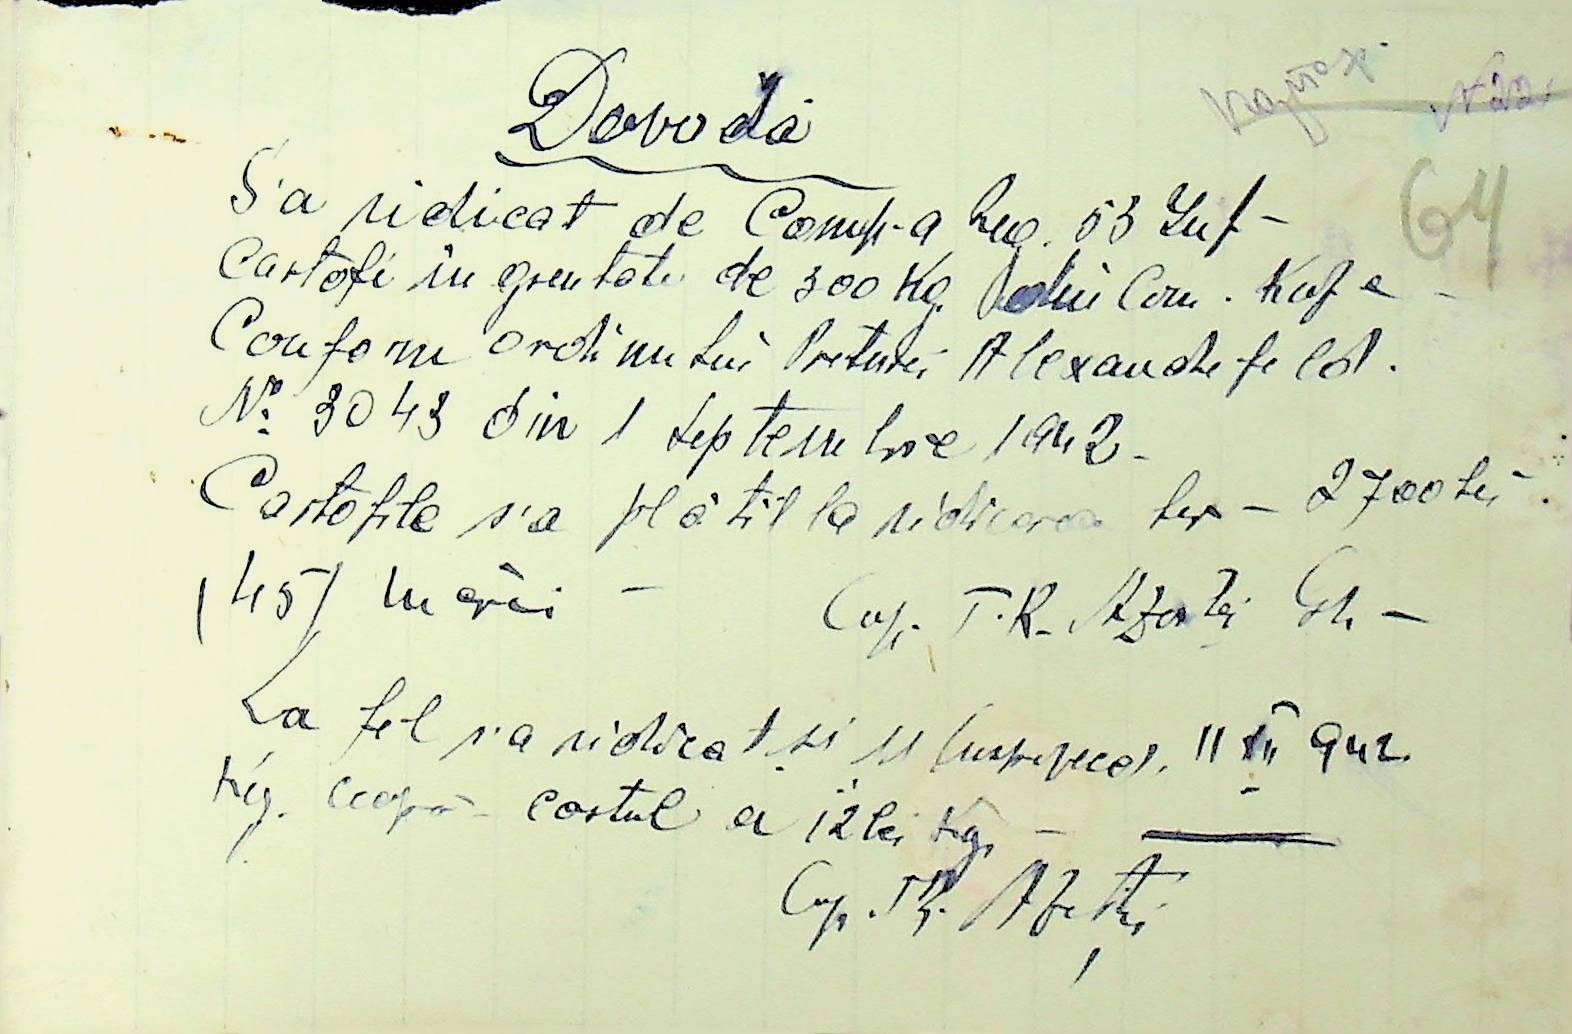 Dovodă
64
S'a ridicat de Comp-a Reg. 53 Inf-
Cartofi în greutate de 300 Kg. din Com.
Conform ordinului Preturei Alexandrfeld.
No. 3043 din 1 Septembrie 1942-
Cartofile s'a plătit la ridicarea lor - 2700 Lei-.
(45) Mărci -
Cap. T.R. Gh. -
La fel s'a ridicat și 11 942
Kg. ceapă - costul a 12 lei Kg. -
Cap. T.R.